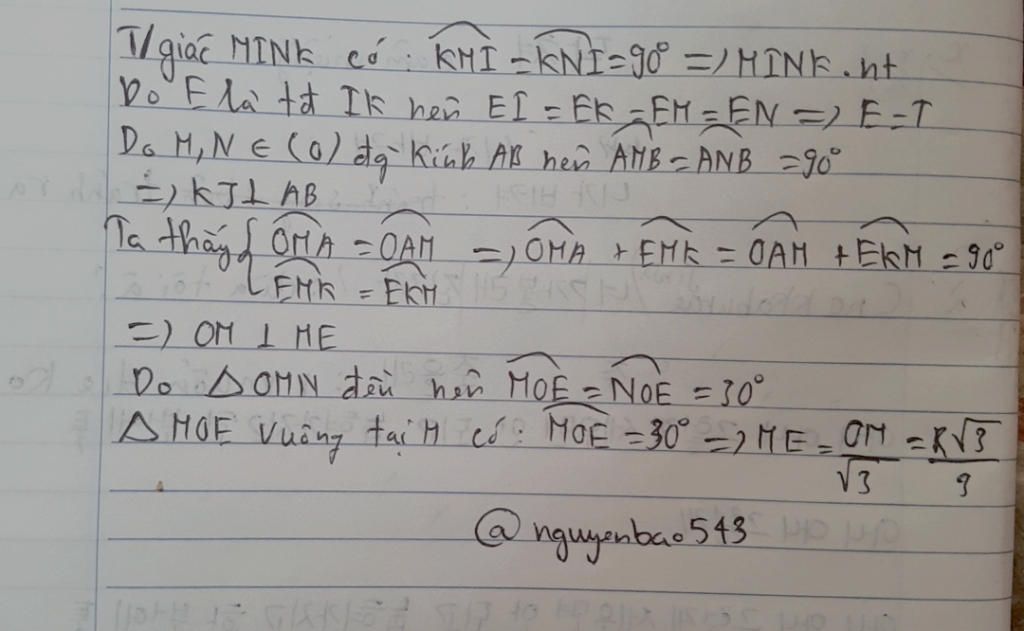 T/giác MINK có: KMI = KNI = 90° => MINK.nt
Do E là tđ IK nên EI = EK = EM = EN => E = T
Do M, N ∈ (O) đg kính AB nên AMB = ANB = 90°
=> KI ⊥ AB
Ta thấy { OMA = OAM => OMA + EMK = OAM + EKM = 90°
EMK = EKM
=> OM ⊥ ME
Do △OMN đều nên MOE = NOE = 30°
△MOE vuông tại M có: MOE = 30° => ME = OM/√3 = R√3/3
@nguyenbao543